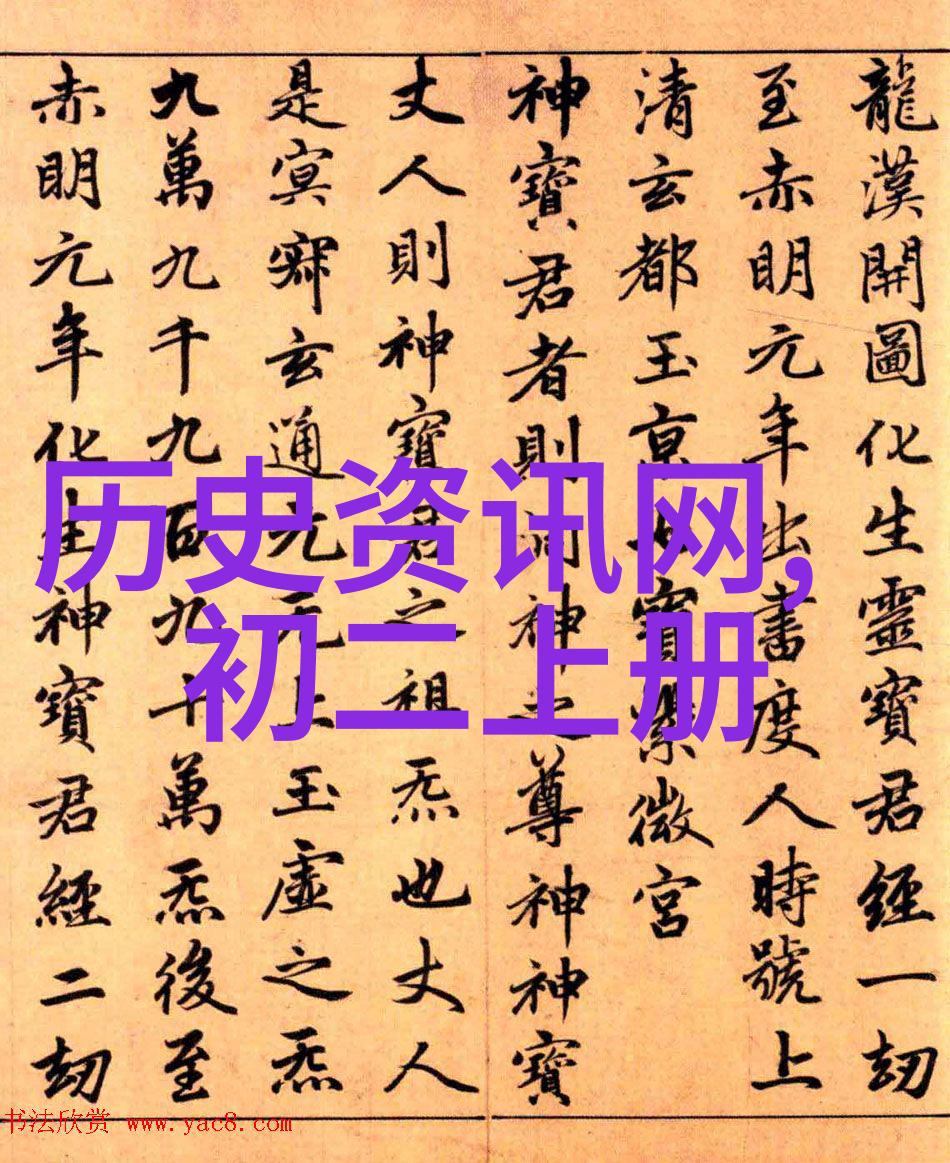 龍漢開圖化生靈寶君經一劫
至赤明元年出書度人時號上
清玄都玉京七寶紫微宮
神寶君者則洞神之尊神神寶
丈人則神寶君之祖炁也丈人
是冥寂玄通元无上玉虛之炁
九萬九千九百九十萬炁後至
赤明元年化生神寶君經二劫
历史资讯网,
初二上册
书法欣赏 www.yac8.com